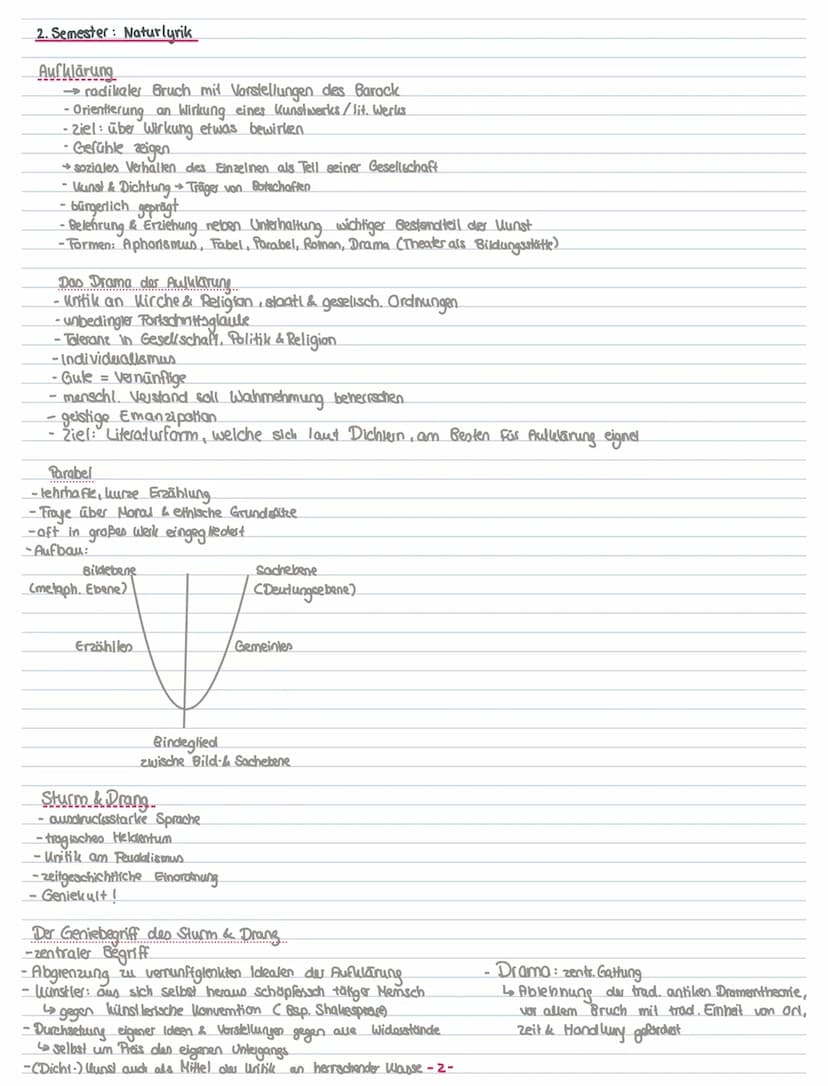 2. Semester: Naturlyrik
Aufklärung
→ radikaler Bruch mit Vorstellungen des Barock
- Orientierung an Wirkung eines Kunstwerks / lit. Werks
- Ziel: über Wirkung etwas bewirken
- Gefühle zeigen
→ soziales Verhalten des Einzelnen als Teil seiner Gesellschaft
- Kunst & Dichtung → Träger von Botschaften
- bürgerlich geprägt
- Belehrung & Erziehung neben Unterhaltung wichtiger Bestandteil der Kunst
- Formen: Aphorismus, Fabel, Parabel, Roman, Drama (Theater als Bildungsstätte)
Das Drama der Aufklärung
- Kritik an Kirche & Religion, staatl & gesellsch. Ordnungen
- unbedingter Fortschrittsglaube
- Toleranz in Gesellschaft, Politik & Religion
- Individualismus
- Gute = Vernünftige
- menschl. Verstand soll Wahrnehmung beherrschen
- geistige Emanzipation
- Ziel: Literaturform, welche sich laut Dichtern, am Besten für Aufklärung eignet
Parabel
- lehrhafte, kurze Erzählung
- Frage über Moral & ethische Grundsätze
- oft in großes Werk eingegliedert
- Aufbau:
Bildebene Sachebene
(metaph. Ebene) (Deutungsebene)
Erzähltes Gemeintes
Bindeglied
zwische Bild- & Sachebene
Sturm & Drang
- ausdrucksstarke Sprache
- tragisches Heldentum
- Kritik am Feudalismus
- zeitgeschichtliche Einordnung
- Geniekult!
Der Geniebegriff des Sturm & Drang
- zentraler Begriff
- Abgrenzung zu vernunftglenkten Idealen der Aufklärung
- Künstler: aus sich selbst heraus schöpferisch tätiger Mensch
↳ gegen künstlerische Konvention (Bsp. Shakespeare)
- Durchsetzung eigener Ideen & Vorstellungen gegen alle Widerstände
↳ selbst um Preis des eigenen Untergangs
- (Dicht-) Kunst auch als Mittel der Kritik an herrschender Klasse
- Drama: zentr. Gattung
↳ Ablehnung der trad. antiken Dramentheorie,
vor allem Bruch mit trad. Einheit von Ort,
Zeit & Handlung gefordert
- 2 -